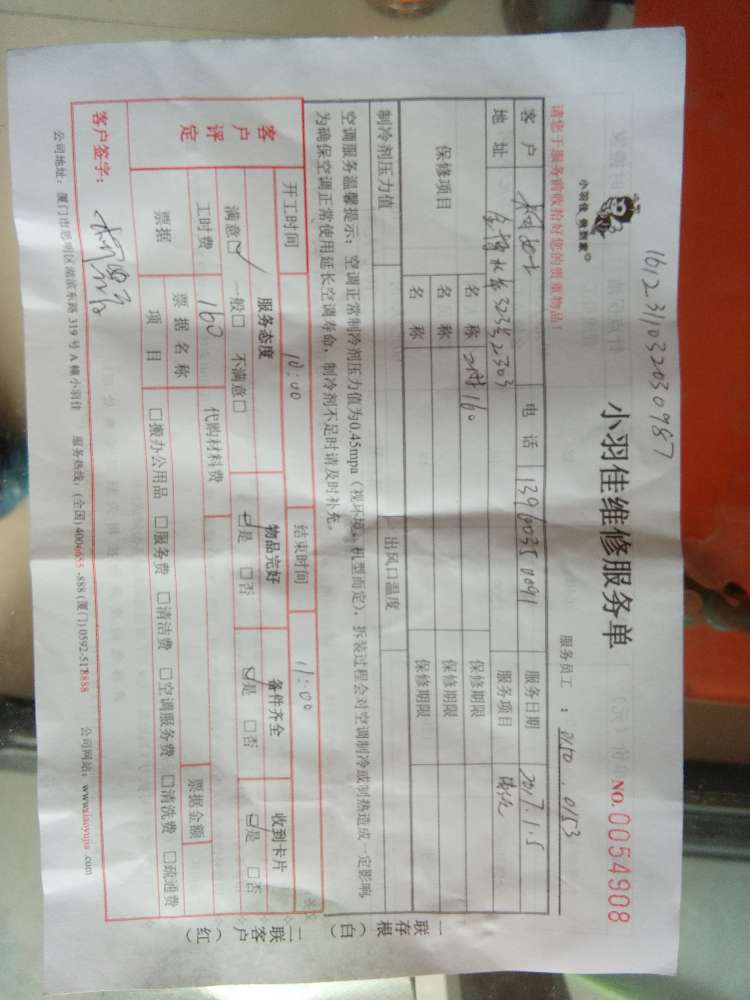 1612311032030987
小羽佳 做到家
小羽佳维修服务单
NO.0054908
请您于服务前收拾好您的贵重物品!
服务员工 : 0150 . 0153
客户 电话 13960350091 服务日期 2017.1.5
地址 323号2303 服务项目
保修项目 名称 160 保修期限
名称 保修期限
名称 保修期限
制冷剂压力值 出风口温度
空调服务温馨提示:空调正常制冷剂压力值为0.45mpa(视环境、机型而定),拆装过程会对空调制冷或制热造成一定影响,
为确保空调正常使用延长空调寿命,制冷剂不足时请及时补充。
开工时间 10:00 结束时间 11:00
客户评定 服务态度 物品完好 备件齐全 收到卡片
满意☑ 一般□ 不满意□ ☑是 □否 ☑是 □否 ☑是 □否
工时费 160 代购材料费
票据 票据名称 票据金额
项目 □搬办公用品 □服务费 □清洁费 □空调服务费 □清洗费 □疏通费
客户签字:
公司地址:厦门市思明区湖滨东路 319 号 A 幢小羽佳 服务热线:(全国) 400 -888 (厦门) 0592-5 8888 公司网站:www.xiaoyujia.com
一联存根(白)
二联客户(红)